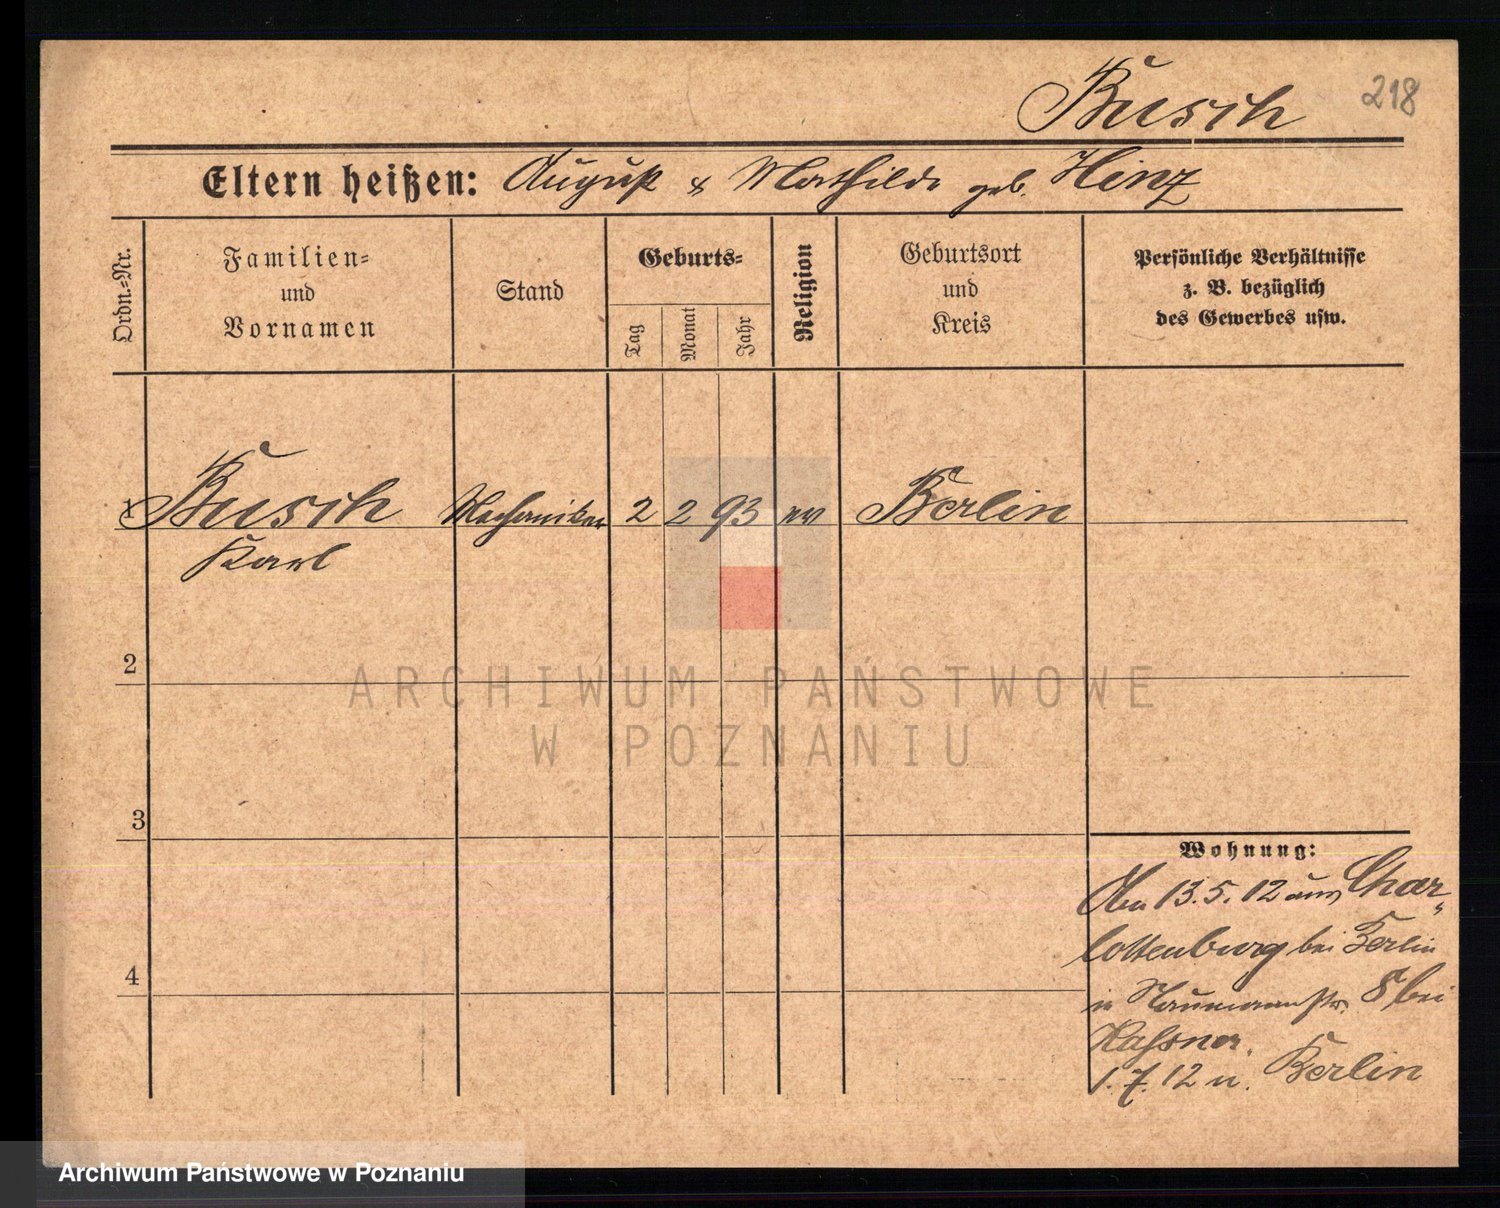 Busch 218
Eltern heißen: August & Mathilde geb. Hinz
Ordn.-Nr.
Familien-
und
Vornamen
Stand
Geburts-
Tag
Monat
Jahr
Religion
Geburtsort
und
Kreis
Persönliche Verhältnisse
z. B. bezüglich
des Gewerbes usw.
1 Busch Mechaniker 2 2 93 ev Berlin
Karl
2
ARCHIWUM PAŃSTWOWE
W POZNANIU
3
4
Wohnung:
Am 13.5.12 aus Char-
lottenburg bei Berlin
in Naumannstr. 8 bei
1.7.12 n. Berlin
Archiwum Państwowe w Poznaniu